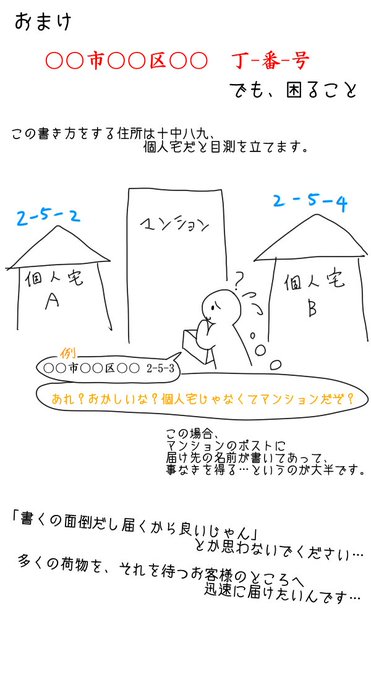 おまけ
○○市○○区○○ 丁-番-号
でも、困ること
この書き方をする住所は十中八九、
個人宅だと目測を立てます。
2-5-2
2-5-4
マンション
個人宅
A
個人宅
B
?
例
○○市○○区○○ 2-5-3
あれ?おかしいな?個人宅じゃなくてマンションだぞ?
この場合、
マンションのポストに
届け先の名前が書いてあって、
事なきを得る…というのが大半です。
「書くの面倒だし届くから良いじゃん」
とか思わないでください…
多くの荷物を、それを待つお客様のところへ
迅速に届けたいんです…